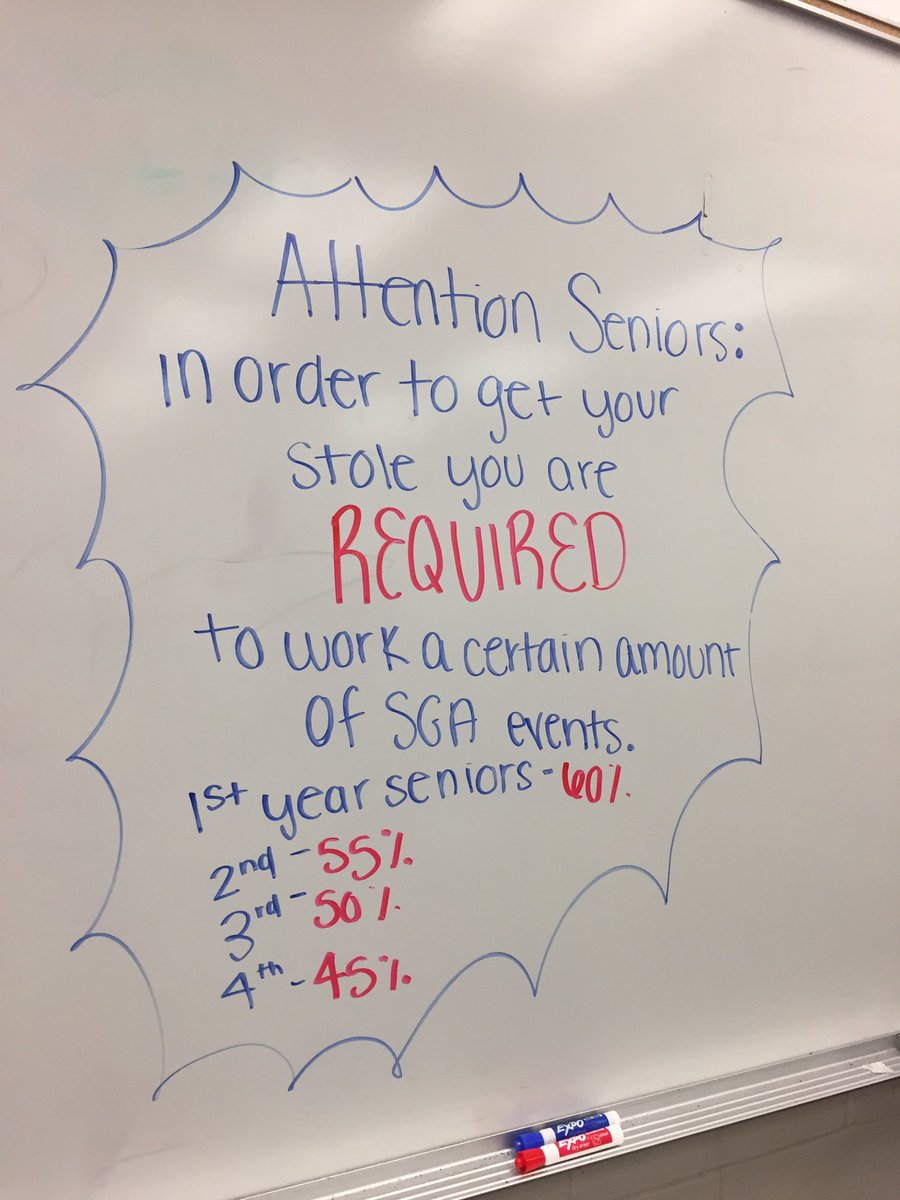 Attention Seniors:
in order to get your
stole you are
REQUIRED
to work a certain amount
of SGA events.
1st year seniors - 60%
2nd - 55%
3rd - 50%
4th - 45%
EXPO
EXPO
dry erase